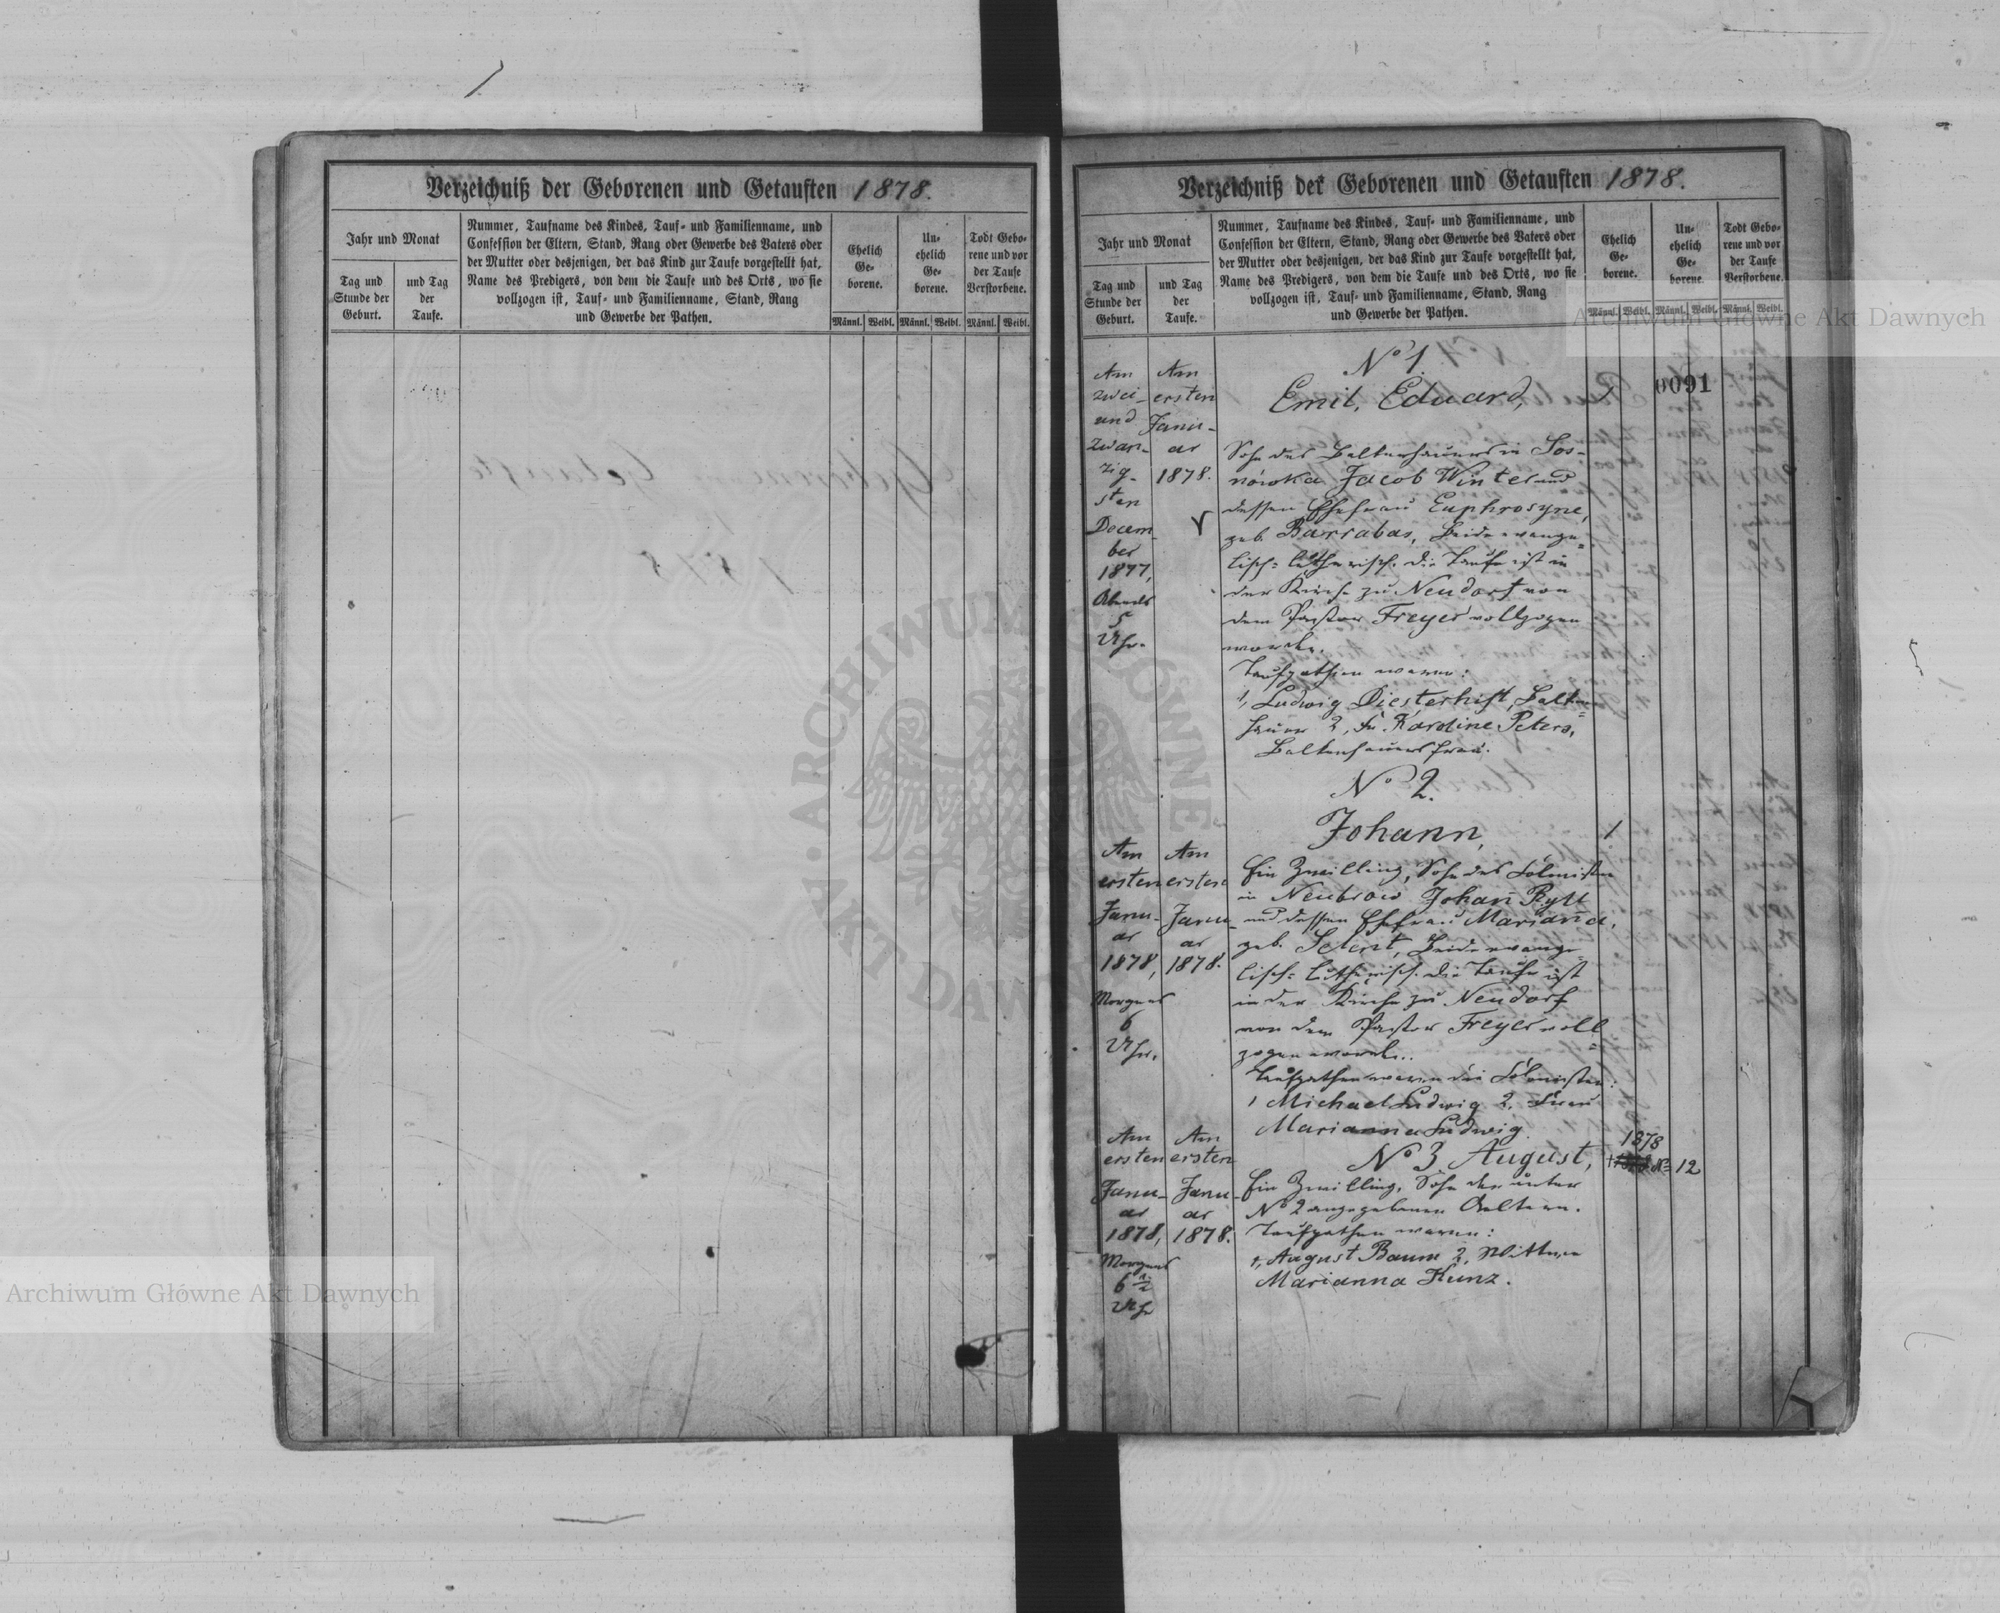 Verzeichniß der Geborenen und Getauften 1878.
Jahr und Monat
Tag und
Stunde der
Geburt.
und Tag
der
Taufe.
Nummer, Taufname des Kindes, Tauf- und Familienname, und
Confession der Eltern, Stand, Rang oder Gewerbe des Vaters oder
der Mutter oder desjenigen, der das Kind zur Taufe vorgestellt hat,
Name des Predigers, von dem die Taufe und des Orts, wo sie
vollzogen ist, Tauf- und Familienname, Stand, Rang
und Gewerbe der Pathen.
Ehelich
Ge-
borene.
Un-
ehelich
Ge-
borene.
Todt Gebo-
rene und vor
der Taufe
Verstorbene.
Männl. Weibl. Männl. Weibl. Männl. Weibl.
Verzeichniß der Geborenen und Getauften 1878.
Jahr und Monat
Tag und
Stunde der
Geburt.
und Tag
der
Taufe.
Nummer, Taufname des Kindes, Tauf- und Familienname, und
Confession der Eltern, Stand, Rang oder Gewerbe des Vaters oder
der Mutter oder desjenigen, der das Kind zur Taufe vorgestellt hat,
Name des Predigers, von dem die Taufe und des Orts, wo sie
vollzogen ist, Tauf- und Familienname, Stand, Rang
und Gewerbe der Pathen.
Ehelich
Ge-
borene.
Un-
ehelich
Ge-
borene.
Todt Gebo-
rene und vor
der Taufe
Verstorbene.
Männl. Weibl. Männl. Weibl. Männl. Weibl.
Archiwum Główne Akt Dawnych
0091
Am
zwei-
und
zwan-
zig-
sten
Decem
ber
1877,
Abends
5
Uhr.
Am
ersten
Janu-
ar
1878.
No 1.
Emil, Eduard,
1
Sohn des in Sos-
nówka Jacob Winter und
dessen Ehefrau Euphrosyne,
geb. Barrabas, Beide evange=
lisch=lutherisch. Die Taufe ist in
der Kirche zu Neudorf von
dem Pastor Freyer vollzogen
worden.
Taufpathen waren:
1, Ludwig Diesterhift,
2, Fr. Karoline Peters,
No 2.
Johann,
1
Am
ersten
Janu-
ar
1878,
Morgens
6
Uhr.
Am
ersten
Janu-
ar
1878.
Ein Zwilling, Sohn des Colonisten
in Neubrow Johann Rytt
und dessen Ehefrau Marianna,
geb. Selent, Beide evange=
lisch=lutherisch. Die Taufe ist
in der Kirche zu Neudorf
von dem Pastor Freyer voll=
zogen worden.
Taufpathen waren die Colonisten:
1 Michael Ludwig 2, Frau
Marianna Ludwig.
Am
ersten
Janu-
ar
1878,
Morgens
6 1/2
Uhr
Am
ersten
Janu-
ar
1878.
No 3 August,
1878
No 12
Ein Zwilling, Sohn der unter
No 2 angegebenen Aeltern.
Taufpathen waren:
1, August Baum 2, Wittwe
Marianna Kunz.
ARCHIWUM GŁÓWNE AKT DAWNYCH
Archiwum Główne Akt Dawnych